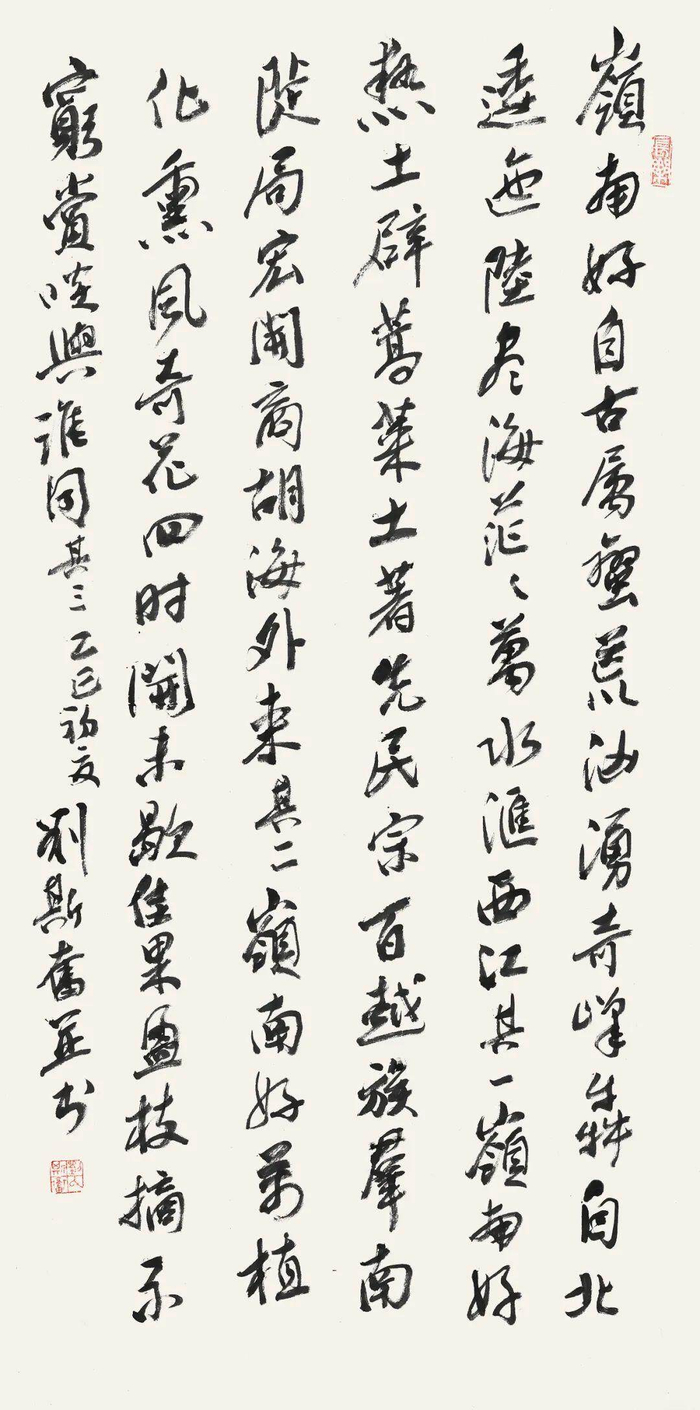 嶺南好自古屬蠻荒汹湧奇峰犇自北
逶迤陸盡海茫々萬水滙西江其一嶺南好
熱土辟蒿萊土著先民宗百越族羣南
徙局宏開商胡海外来其二嶺南好萬植
化熏風奇花四时開未歇佳果盈枝摘不
窮賞啖與誰同其三乙巳初夏劉斯奮並书